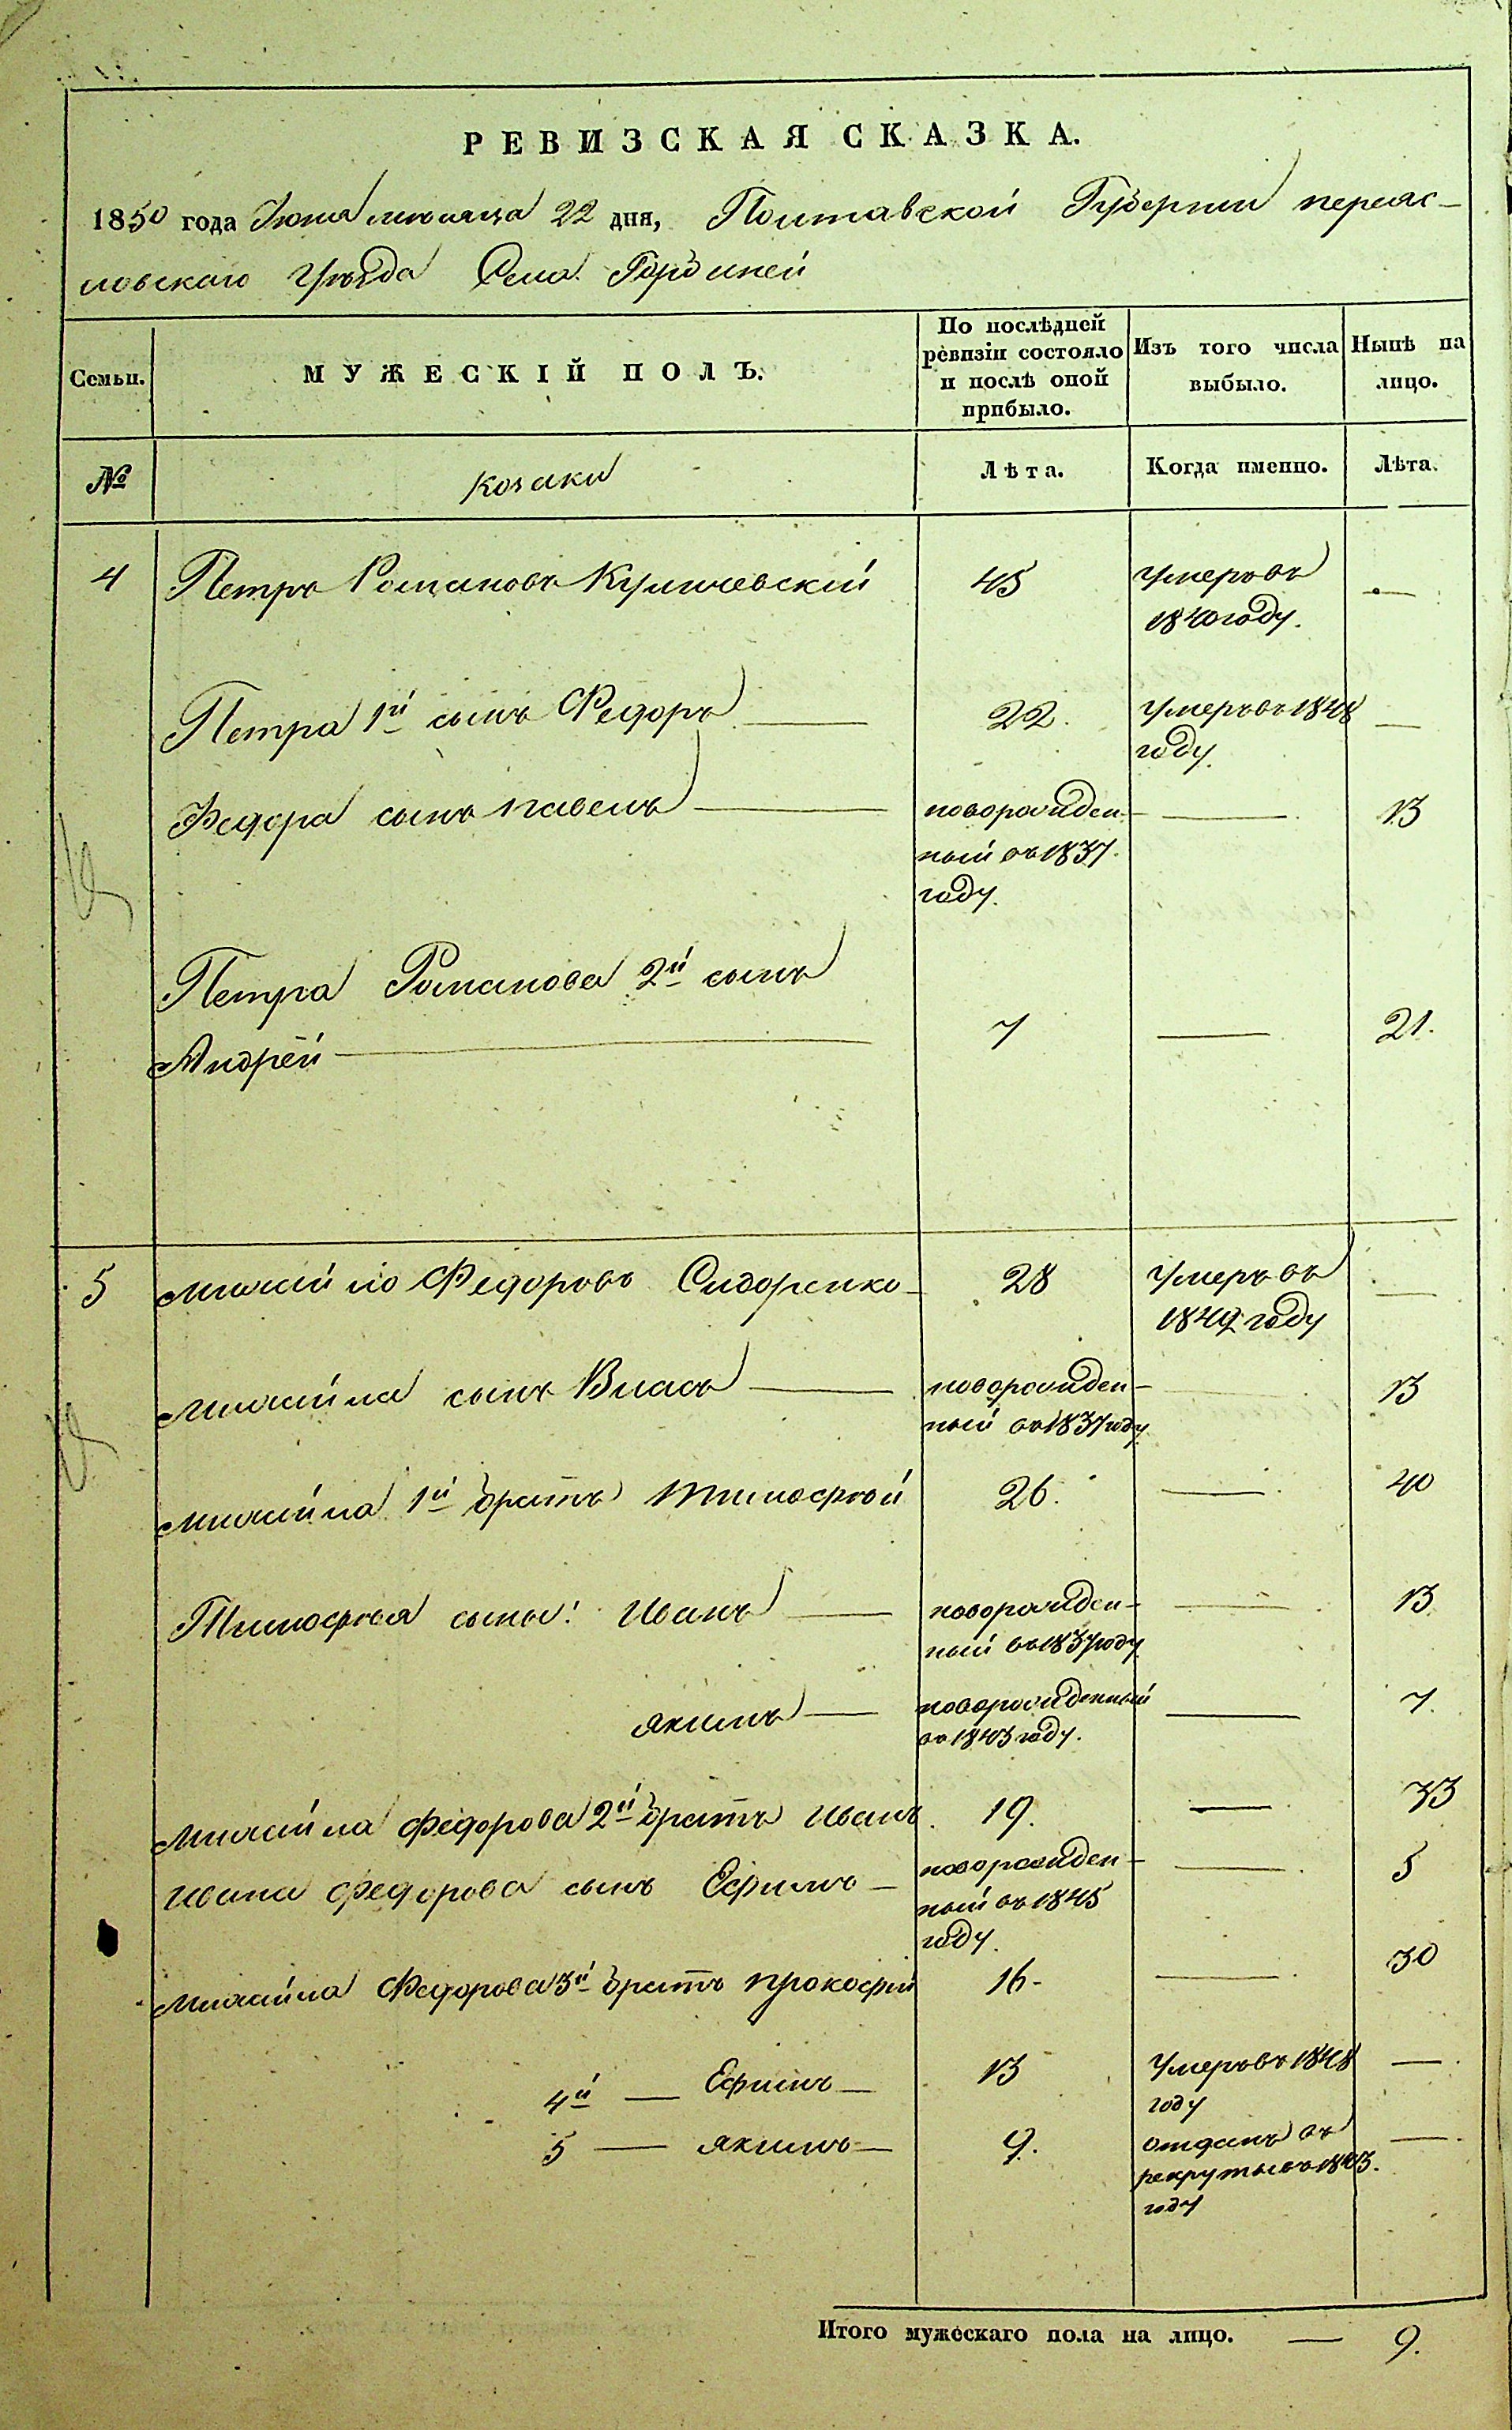 РЕВИЗСКАЯ СКАЗКА.
1850 года Июня месяца 22 дня, Полтавской Губернии переяс-
ловскаго Уѣзда Села
Семьи.
МУЖЕСКІЙ ПОЛЪ.
По послѣдней ревизіи состояло и послѣ оной прибыло.
Изъ того числа выбыло.
Нынѣ на лицо.
№
козаки
Лѣта.
Когда именно.
Лѣта.
4 Петръ Романовъ 45 Умеръ въ —
1840 году.
Петра 1й сынъ Федоръ — 22. Умеръ въ 1848 —
году.
Федора сынъ павелъ — новорожден- — 13
ный въ 1837.
году.
Петра Романова 2й сынъ
Андрей — 7 — 21.
5 михайло Федоровъ Сидоренко — 28 Умеръ въ —
1849 году
михайла сынъ Власъ — новорожден- — 13
ный въ 1837 году
михайла 1й братъ тимофѣй 26. — 40
Тимофѣя сыны: иванъ — новорожден- — 13
ный въ 1837 году
якимъ — новорожденный — 7.
въ 1843 году.
михайла федорова 2й братъ иванъ 19. — 33
ивана федорова сынъ Ефимъ — новорожден- — 5
ный въ 1845
году.
михайла Федорова 3й братъ прокофій 16 - — 30
4й — Ефимъ — 13 Умеръ въ 1848 —
году
5 — якимъ — 9. отданъ въ —
рекруты въ 1843.
году
Итого мужескаго пола на лицо. — 9.